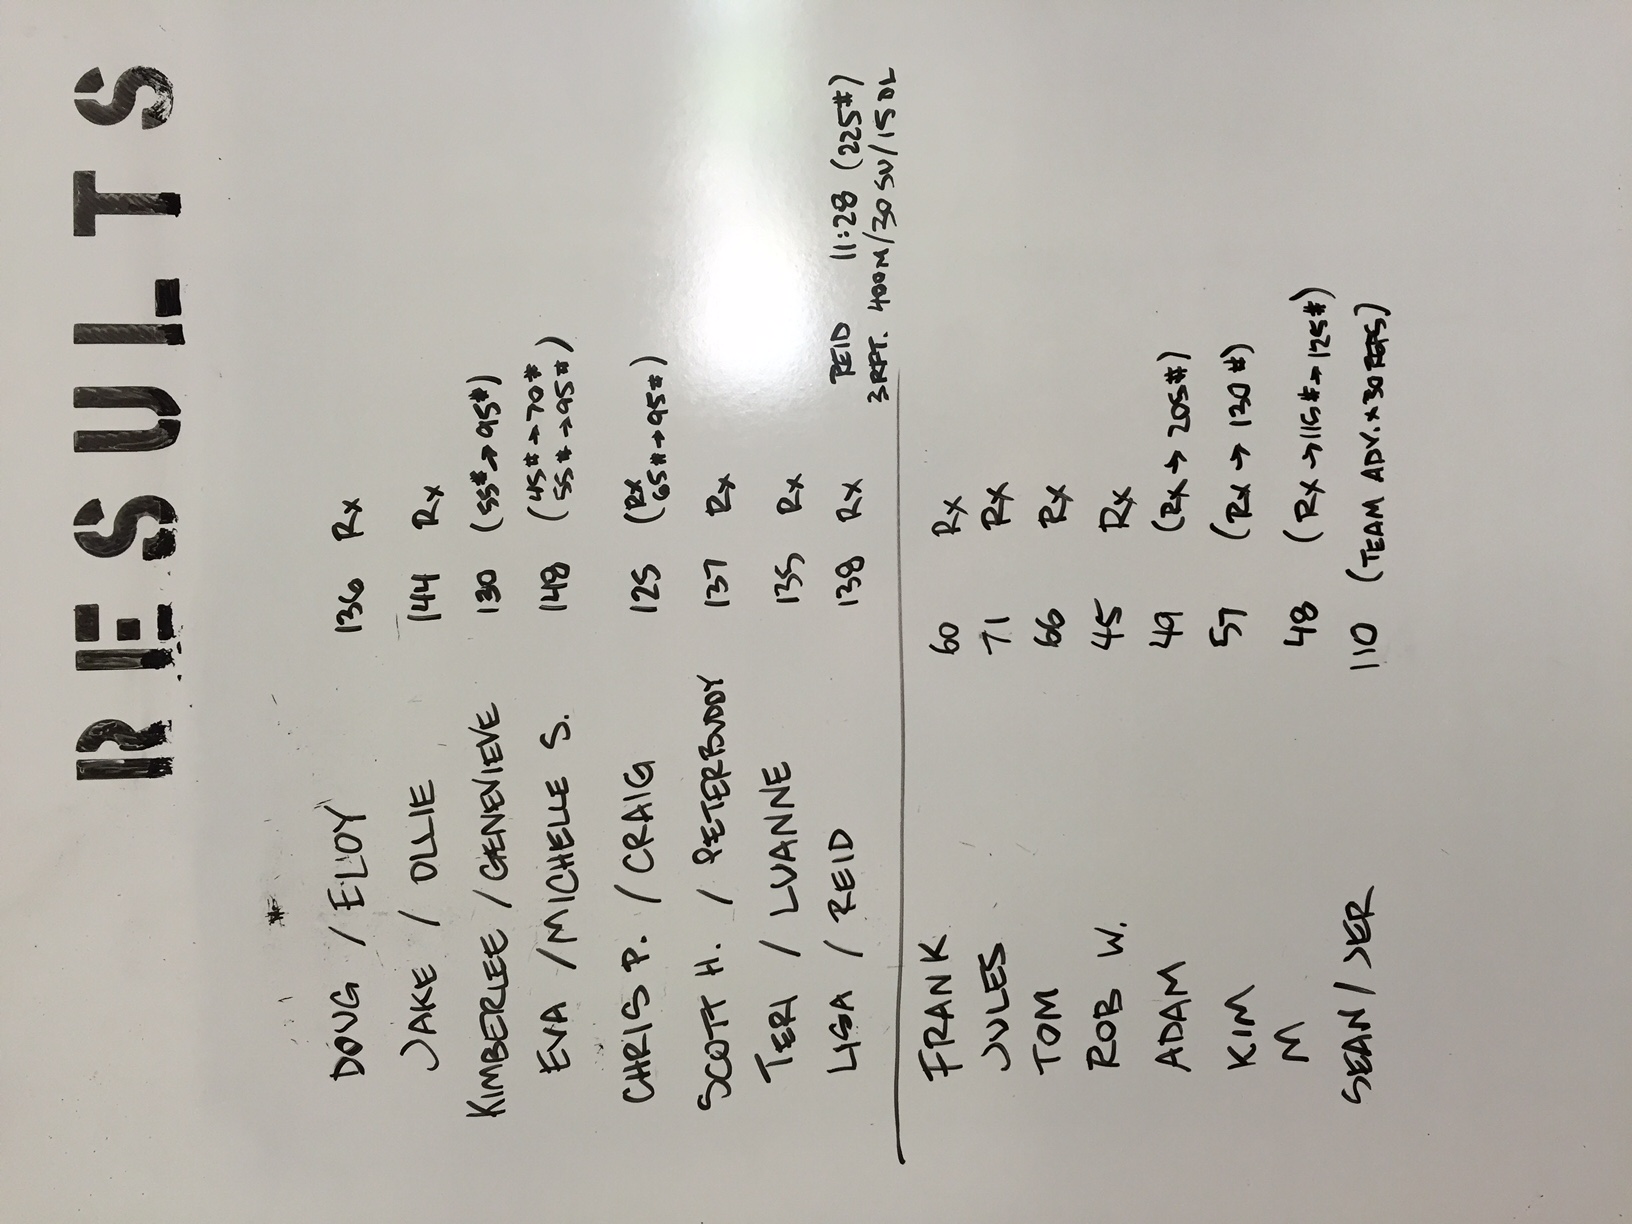 RESULTS
DOUG / ELOY 136 Rx
JAKE / OLLIE 144 Rx
KIMBERLEE / GENEVIEVE 130 (55#→95#)
EVA / MICHELLE S. 148 (45#→70#
55#→95#)
CHRIS P. / CRAIG 125 (Rx
65#→95#)
SCOTT H. / PETERBUDDY 137 Rx
TERI / LUANNE 135 Rx
LISA / REID 138 Rx
REID 11:28 (225#)
3 RFT. 400M/30 SU/15 DL
FRANK 60 Rx
JULES 71 Rx
TOM 66 Rx
ROB W. 45 Rx
ADAM 49 (Rx → 205#)
KIM 57 (Rx → 130#)
M 48 (Rx →115#→125#)
SEAN / JER 110 (TEAM ADV. x 30 REPS)